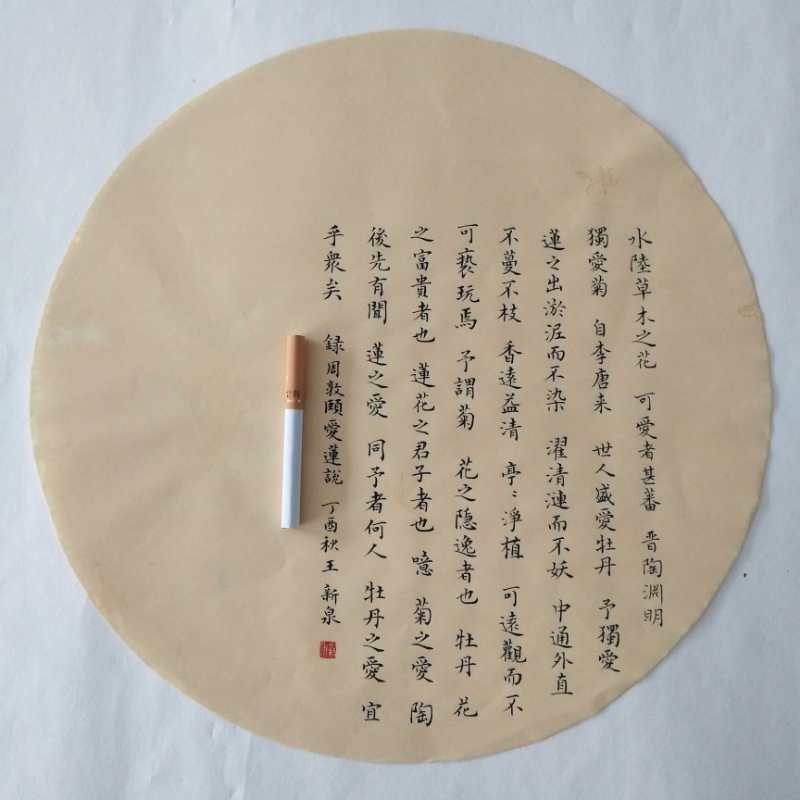 水陸草木之花 可愛者甚蕃 晋陶渊明
獨愛菊 自李唐来 世人盛愛牡丹 予獨愛
蓮之出淤泥而不染 濯清漣而不妖 中通外直
不蔓不枝 香遠益清 亭〻淨植 可遠觀而不
可亵玩焉 予謂菊 花之隐逸者也 牡丹 花
之富貴者也 蓮花之君子者也 噫 菊之愛 陶
後先有聞 蓮之愛 同予者何人 牡丹之愛 宜
乎衆矣 録周敦頤愛蓮說 丁酉秋王新泉